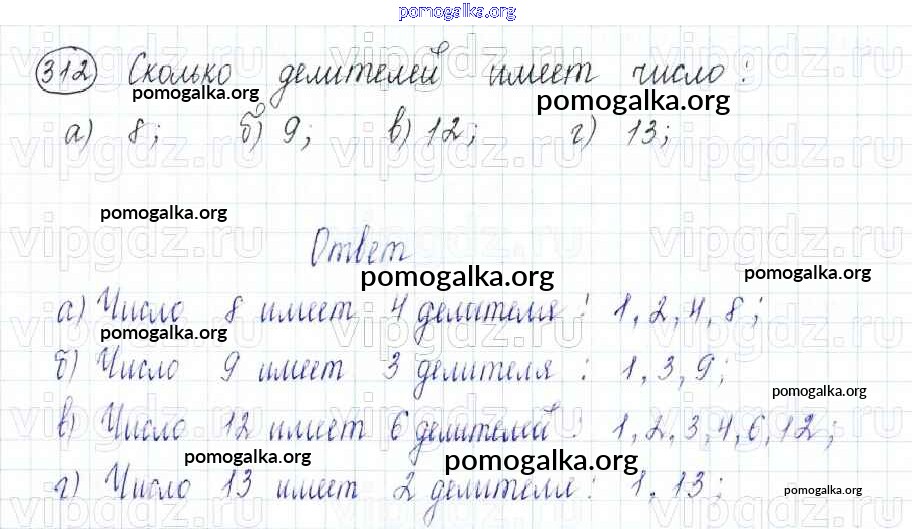 pomogalka.org
312 Сколько делителей имеет число:
pomogalka.org pomogalka.org
а) 8; б) 9; в) 12; г) 13;
vipgdz.ru vipgdz.ru vipgdz.ru
pomogalka.org
Ответ
vipgdz.ru vipgdz.ru vipgdz.ru
pomogalka.org pomogalka.org
а) Число 8 имеет 4 делителя: 1, 2, 4, 8;
pomogalka.org
б) Число 9 имеет 3 делителя: 1, 3, 9;
pomogalka.org
в) Число 12 имеет 6 делителей: 1, 2, 3, 4, 6, 12;
pomogalka.org pomogalka.org
г) Число 13 имеет 2 делителя: 1, 13;
pomogalka.org